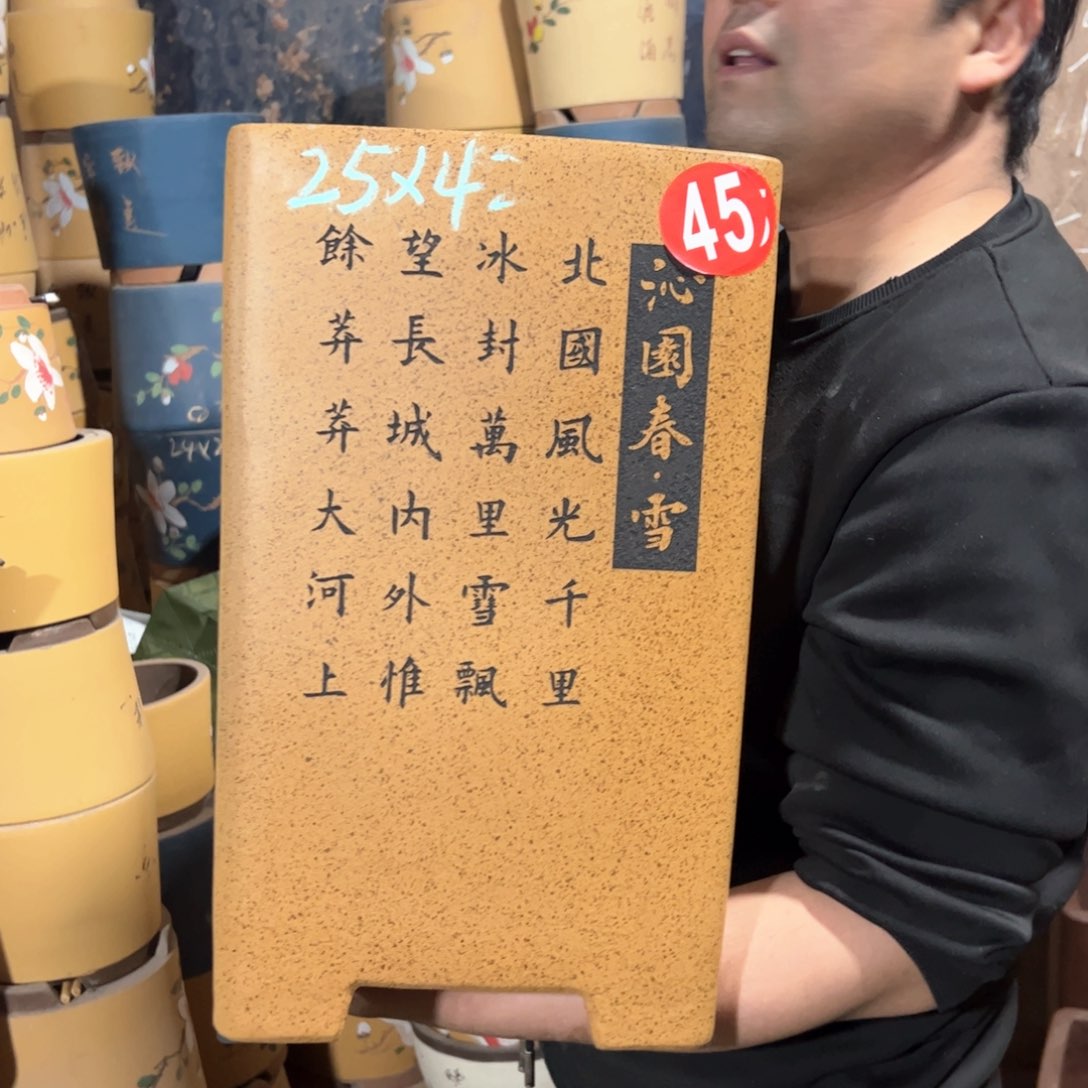 25X4
45
沁園春·雪
北國風光千里
冰封萬里雪飄
望長城內外惟
餘莽莽大河上
24X2
飄